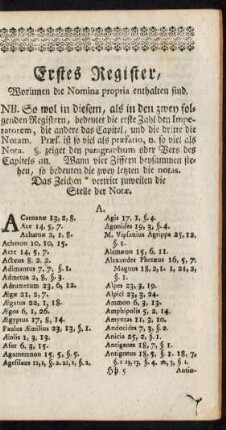 Erstes Register,
Worinnen die Nomina propria enthalten sind.
NB. So wol in diesem, als in den zwey fol-
genden Registern, bedeutet die erste Zahl den Impe-
ratorem, die andere das Capitel, und die dritte die
Notam. Præf. ist so viel als præfatio, n. so viel als
Nota. §. zeiget den paragraphum oder Vers des
Capitels an. Wann vier Ziffern beysammen ste-
hen, so bedeuten die zwey letzten die notas.
Das Zeichen * vertritt zuweilen die
Stelle der Notæ.
A.
Acarnanæ 13, 2, 8.
Ace 14, 5, 7.
Acharnæ 2, 1, 8.
Acheron 10, 10, 15.
Acte 14, 5, 7.
Adcæus 8. 2. 2.
Adimantus 7, 7, §. 1.
Admetus 2, 8, §. 3.
Adrumetum 23, 6, 12.
Ægæ 21, 2, 7.
Ægatæ 22, 1, 18.
Ægos 6, 1, 26.
Ægyptus 17, 8, 14.
Paulus Æmilius 23, 13, §. 1.
Æolis 1, 3, 13.
Afer 6, 3, 15.
Agamemnon 15, 5, §. 5.
Agesilaus
Agis 17, 1, §. 4.
Agonides 19, 3, §. 4.
M. Vipsanius Agrippa 25, 12,
§. 1.
Alcmæon 15, 6, 11.
Alexander Pheræus 16, 5, 7.
Magnus 18, 2, 1. 1, 21, 2,
§. 1.
Alpes 23, 3, 19.
Alpici 23, 3, 24.
Ammon 6, 3, 13.
Amphipolis 5, 2, 14.
Amyntas 11, 3, 10.
Andocides 7, 3, §. 2.
Anicia 25, 2, §. 1.
Antigenes 18, 7, §. 1.
Antigonus 18, 5, §. 1. 18, 7,
Hh 5